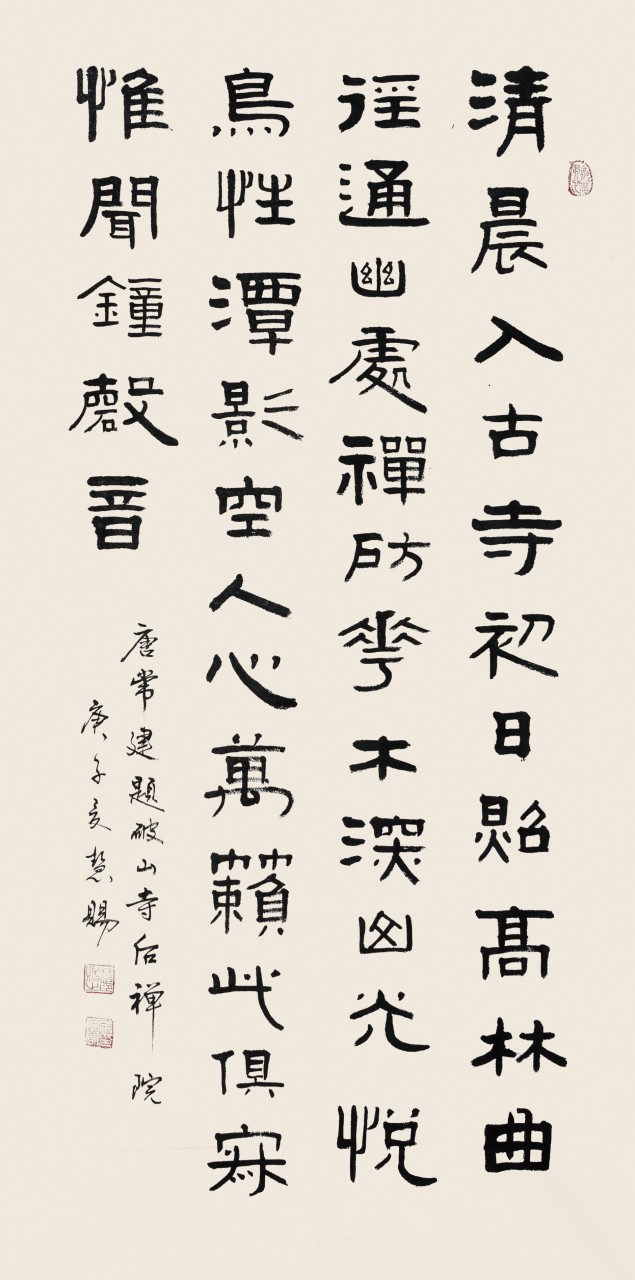 清晨入古寺初日照高林曲
徑通幽處禪房華木深山光悅
鳥性潭影空人心萬籟此俱寂
惟聞鐘磬音
唐常建題破山寺后禅院
庚子夏慧賜